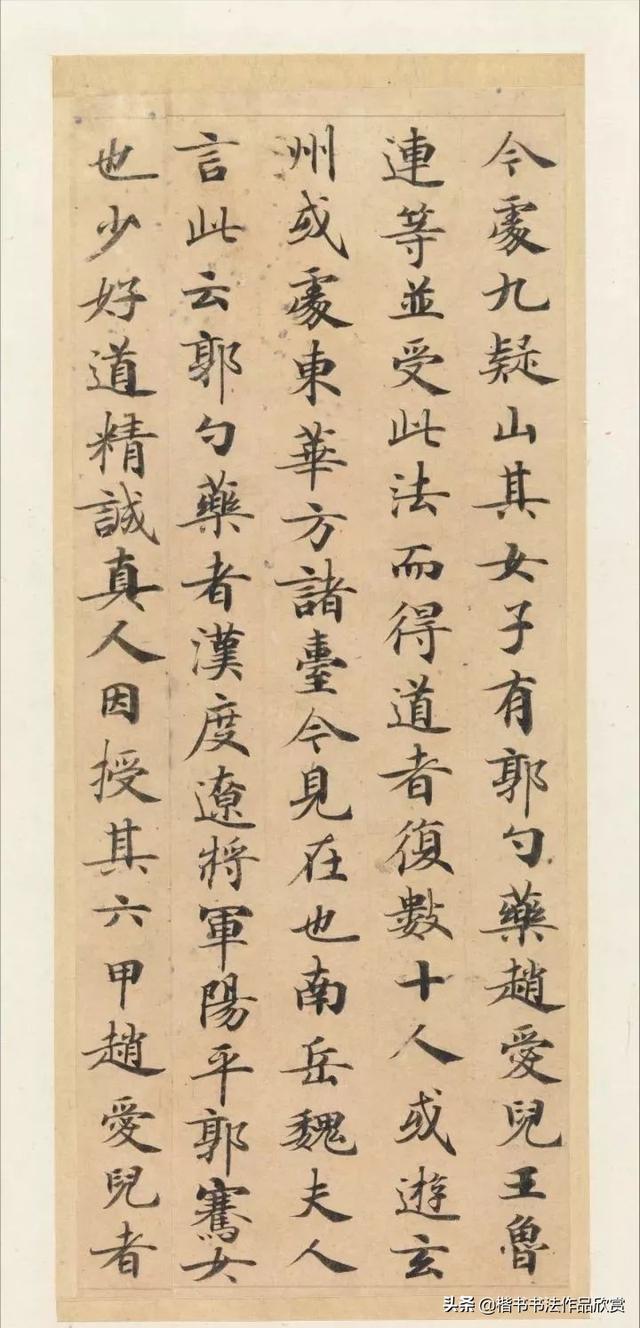 今處九疑山其女子有郭勺藥趙愛兒王魯
連等並受此法而得道者復數十人或遊玄
州或處東華方諸臺今見在也南岳魏夫人
言此云郭勺藥者漢度遼將軍陽平郭騫女
也少好道精誠真人因授其六甲趙愛兒者
头条 @楷书书法作品欣赏